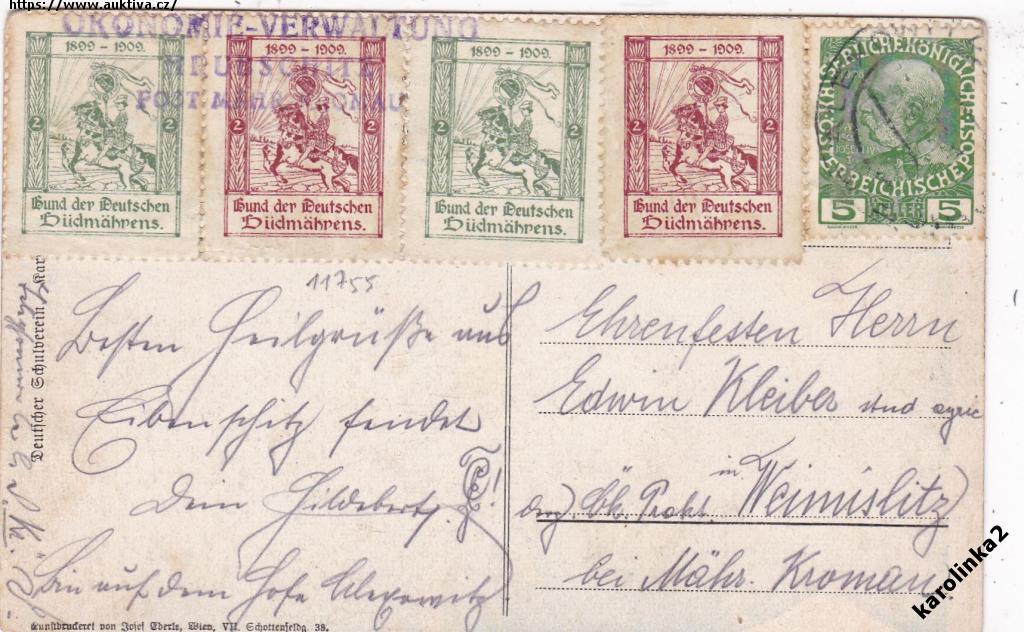 https://www.auktiva.cz/
ÖKONOMIE-VERWALTUNG
POST MÄHR.
1899 - 1909.
2 2
Bund der Deutschen
Südmährens.
1899 - 1909.
2 2
Bund der Deutschen
Südmährens.
1899 - 1909.
2 2
Bund der Deutschen
Südmährens.
1899 - 1909.
2 2
Bund der Deutschen
Südmährens.
KAISERLICHEKÖNIGLICHE
ÖSTERREICHISCHEPOST
5 HELLER 5
11755
Deutscher Schulverein Kar
Besten Heilgrüße aus
Eibenschitz sendet
Dein Hildebert
Bin auf dem Hofe Alexowitz
Ehrenfesten Herrn
Edwin Kleiber
in
Weimislitz
bei Mähr. Kroman
Kunstdruckerei von Josef Eberle, Wien, VII. Schottenfeldg. 38.
karolinka2